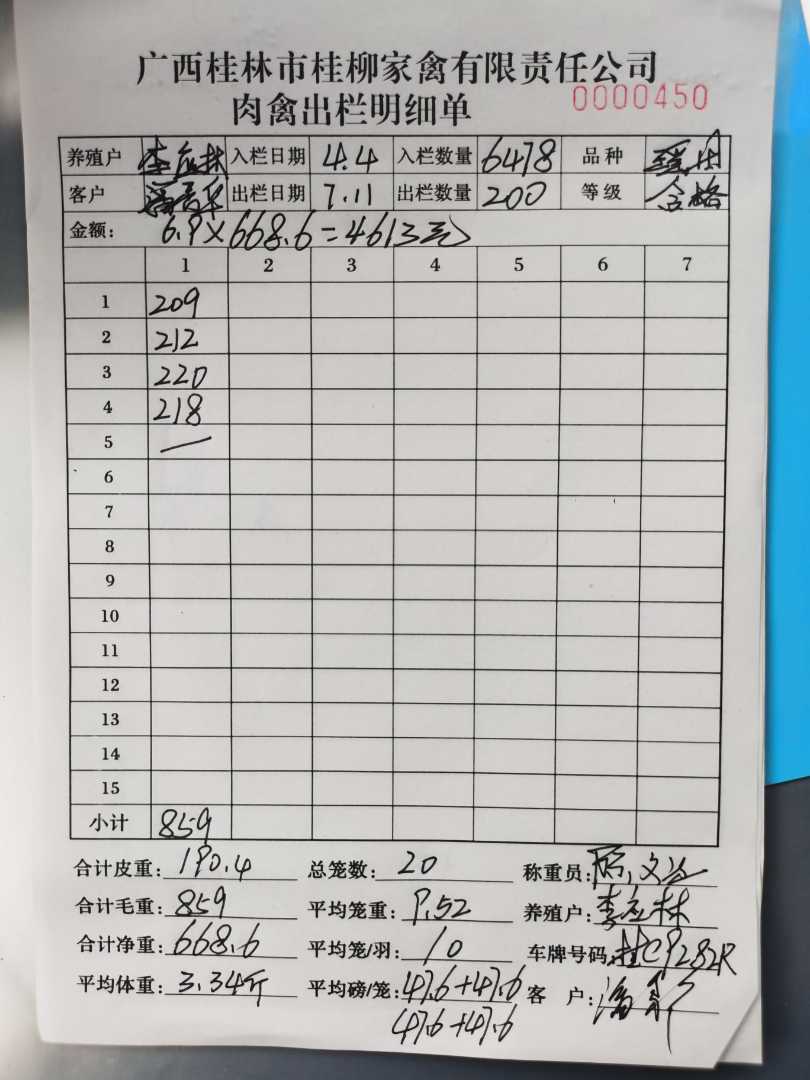 广西桂林市桂柳家禽有限责任公司
肉禽出栏明细单 0000450
养殖户 李应林 入栏日期 4.4 入栏数量 6478 品种
客户 出栏日期 7.11 出栏数量 200 等级 合格
金额: 6.9×668.6=4613元
1 2 3 4 5 6 7
1 209
2 212
3 220
4 218
5 —
6
7
8
9
10
11
12
13
14
15
小计 859
合计皮重: 190.4 总笼数: 20 称重员:
合计毛重: 859 平均笼重: 9.52 养殖户: 李应林
合计净重: 668.6 平均笼/羽: 10 车牌号码: 桂C9282R
平均体重: 3.34斤 平均磅/笼: 47.6+47.6 客 户:
47.6+47.6